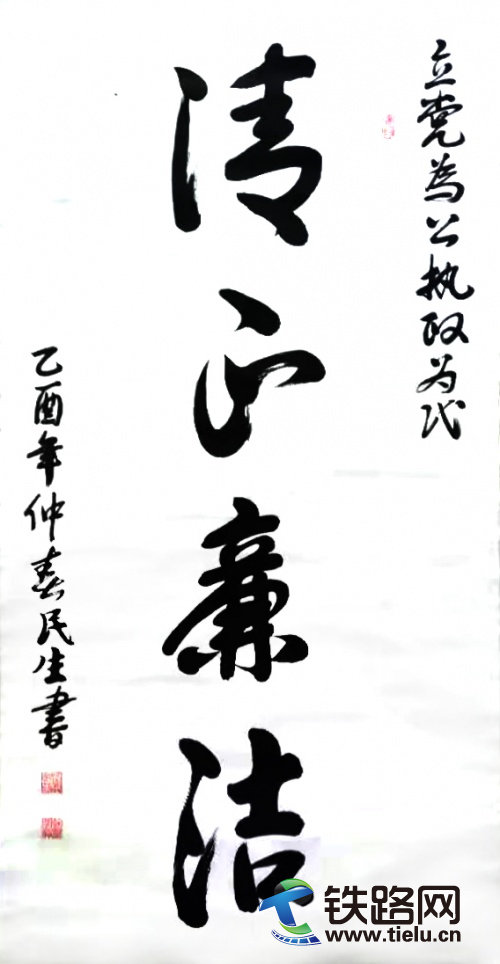 立党為公执政为民
清正廉洁
乙酉年仲春民生書
铁路网
www.tielu.cn